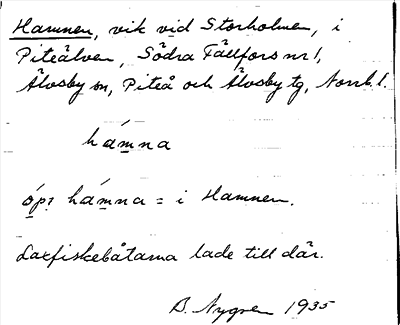 Hamnen, vik vid Storholmen, i
Piteälven, Södra Fällfors nr 1,
Älvsby sn, Piteå och Älvsby tg, Norrb. l.
hámna
ó̱pɂ hámna = i Hamnen.
Laxfiskebåtarna lade till där.
B. Nygren 1935